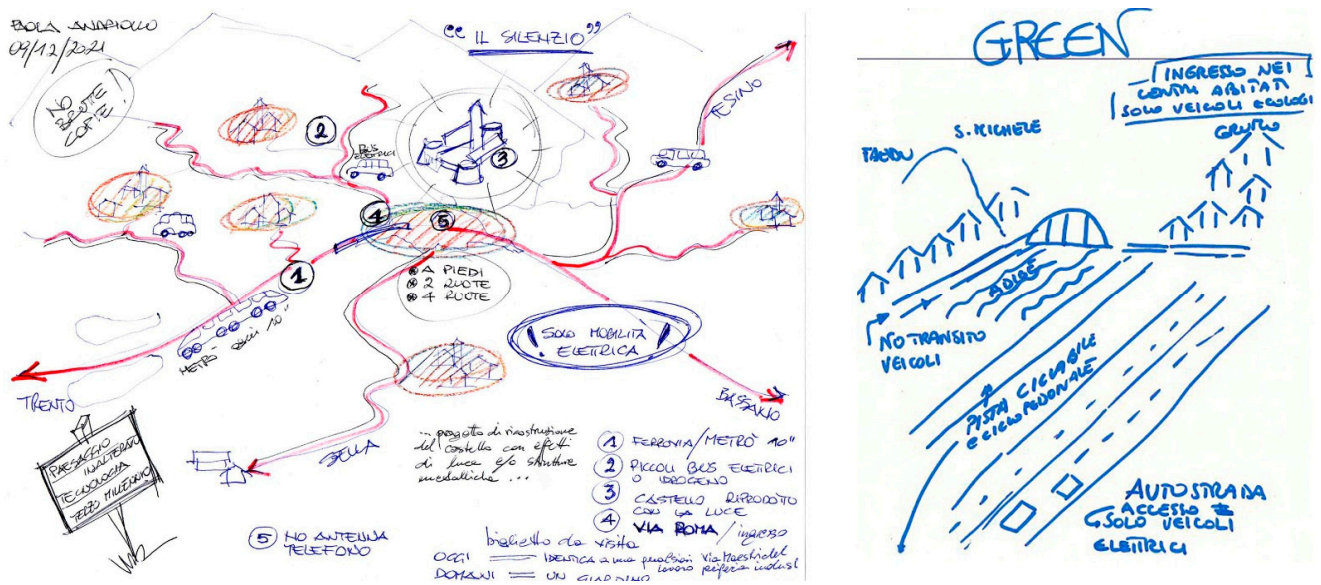 PAOLA ANDRIOLLO
09/12/2021
“ IL SILENZIO ”
NO
BRUTTE
COPIE!
2
BUS
ELETTRICI
3
TESINO
4
5
1
* A PIEDI
* 2 RUOTE
* 4 RUOTE
METRÒ OGNI 10"
SOLO MOBILITÀ
ELETTRICA!
TRENTO
BASSANO
SELLA
PAESAGGIO
INALTERATO
TECNOLOGIA
TERZO MILLENNIO
... progetto di ricostruzione
del castello con effetti
di luce e/o strutture
metalliche ...
1 FERROVIA/METRÒ 10"
2 PICCOLI BUS ELETTRICI
O IDROGENO
3 CASTELLO RIPRODOTTO
CON LA LUCE
4 VIA ROMA / ingresso
biglietto da visita
OGGI = IDENTICA a una qualsiasi via Maestri del
lavoro periferia indust
DOMANI = UN GIARDINO
5 NO ANTENNA
TELEFONO
GREEN
INGRESSO NEI
CENTRI ABITATI
SOLO VEICOLI ECOLOGI
GRUMO
S. MICHELE
FAEDO
ADIGE
NO TRANSITO
VEICOLI
PISTA CICLABILE
e CICLOPEDONALE
AUTOSTRADA
ACCESSO
SOLO VEICOLI
ELETTRICI